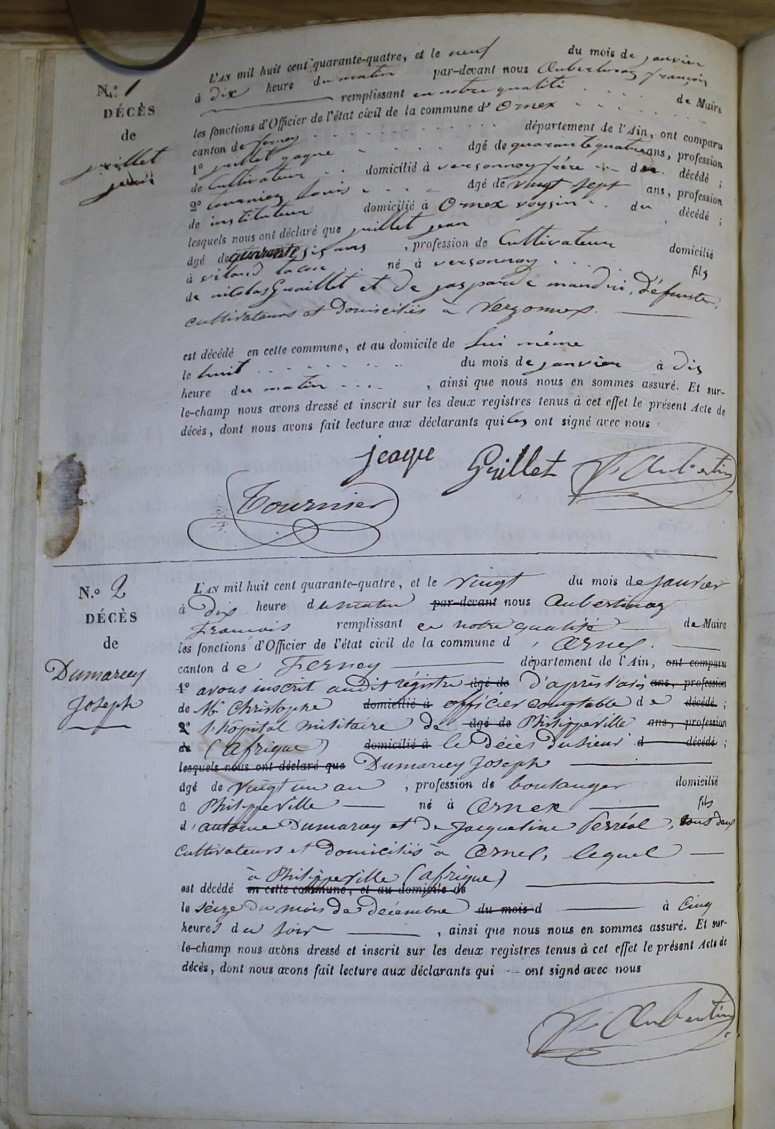 N.º 1
DÉCÈS
de
juillet
jean
L'AN mil huit cent quarante-quatre, et le neuf du mois de janvier
à dix heure du matin par-devant nous Aubertin françois
remplissant en notre qualité de Maire
les fonctions d'Officier de l'état civil de la commune d'Ornex
canton de ferney département de l'Ain, ont comparu
1º juillet âgé de quarante quatre ans, profession
de Cultivateur domicilié à versonnay frère du décédé ;
2º tournier louis âgé de vingt sept ans, profession
de instituteur domicilié à Ornex voysin du décédé ;
lesquels nous ont déclaré que juillet jean
âgé de quarante six ans, profession de Cultivateur domicilié
à né à versonnay fils
de nicolas Guillet et de défunte,
cultivateurs et domiciliés à
est décédé en cette commune, et au domicile de lui même
le huit du mois de janvier à dix
heure du matin, ainsi que nous nous en sommes assuré. Et sur-
le-champ nous avons dressé et inscrit sur les deux registres tenus à cet effet le présent Acte de
décès, dont nous avons fait lecture aux déclarants qui les ont signé avec nous
jeaque Guillet Aubertin
Tournier
N.º 2
DÉCÈS
de
Dumarey
Joseph
L'AN mil huit cent quarante-quatre, et le vingt du mois de janvier
à Dix heure du matin par-devant nous Aubertin
francois remplissant en notre qualité de Maire
les fonctions d'Officier de l'état civil de la commune d'Ornex
canton de Ferney département de l'Ain, ont comparu
1º avons inscrit audit régistre âgé de d'après l'avis ans, profession
de Mr Christophe domicilié à officier comptable de décédé ;
2º l'hôpital militaire de âgé de Philippeville ans, profession
de (Afrique) domicilié à le décès du sieur d décédé ;
lesquels nous ont déclaré que Dumarey Joseph
âgé de vingt un an, profession de boulanger domicilié
à Philippeville né à Ornex fils
d'antoine Dumarey et de Jacqueline Perréal, tous deux
cultivateurs et domiciliés à Ornex, lequel
à Philippeville (afrique)
est décédé en cette commune, et au domicile de
le seize du mois de décembre du mois d à cinq
heures du soir, ainsi que nous nous en sommes assuré. Et sur-
le-champ nous avons dressé et inscrit sur les deux registres tenus à cet effet le présent Acte de
décès, dont nous avons fait lecture aux déclarants qui ont signé avec nous
Aubertin